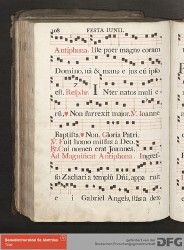 108 FESTA IUNII.
Antiphona. Iste puer magnus coram
Domino, nā & manus ejus cū ipso
est. Respōbr. Inter natos muli e-
rū, Non surrexit major, V. Ioanne
Baptista. Non. Gloria Patri.
V. Fuit homo missus à Deo.
R. Cui nomen erat Joannes.
Ad Magnificat Antiphona. Ingres-
so Zacharia templū Dñi, appa ruit
ei Gabriel Angelus, stans dex
DFG